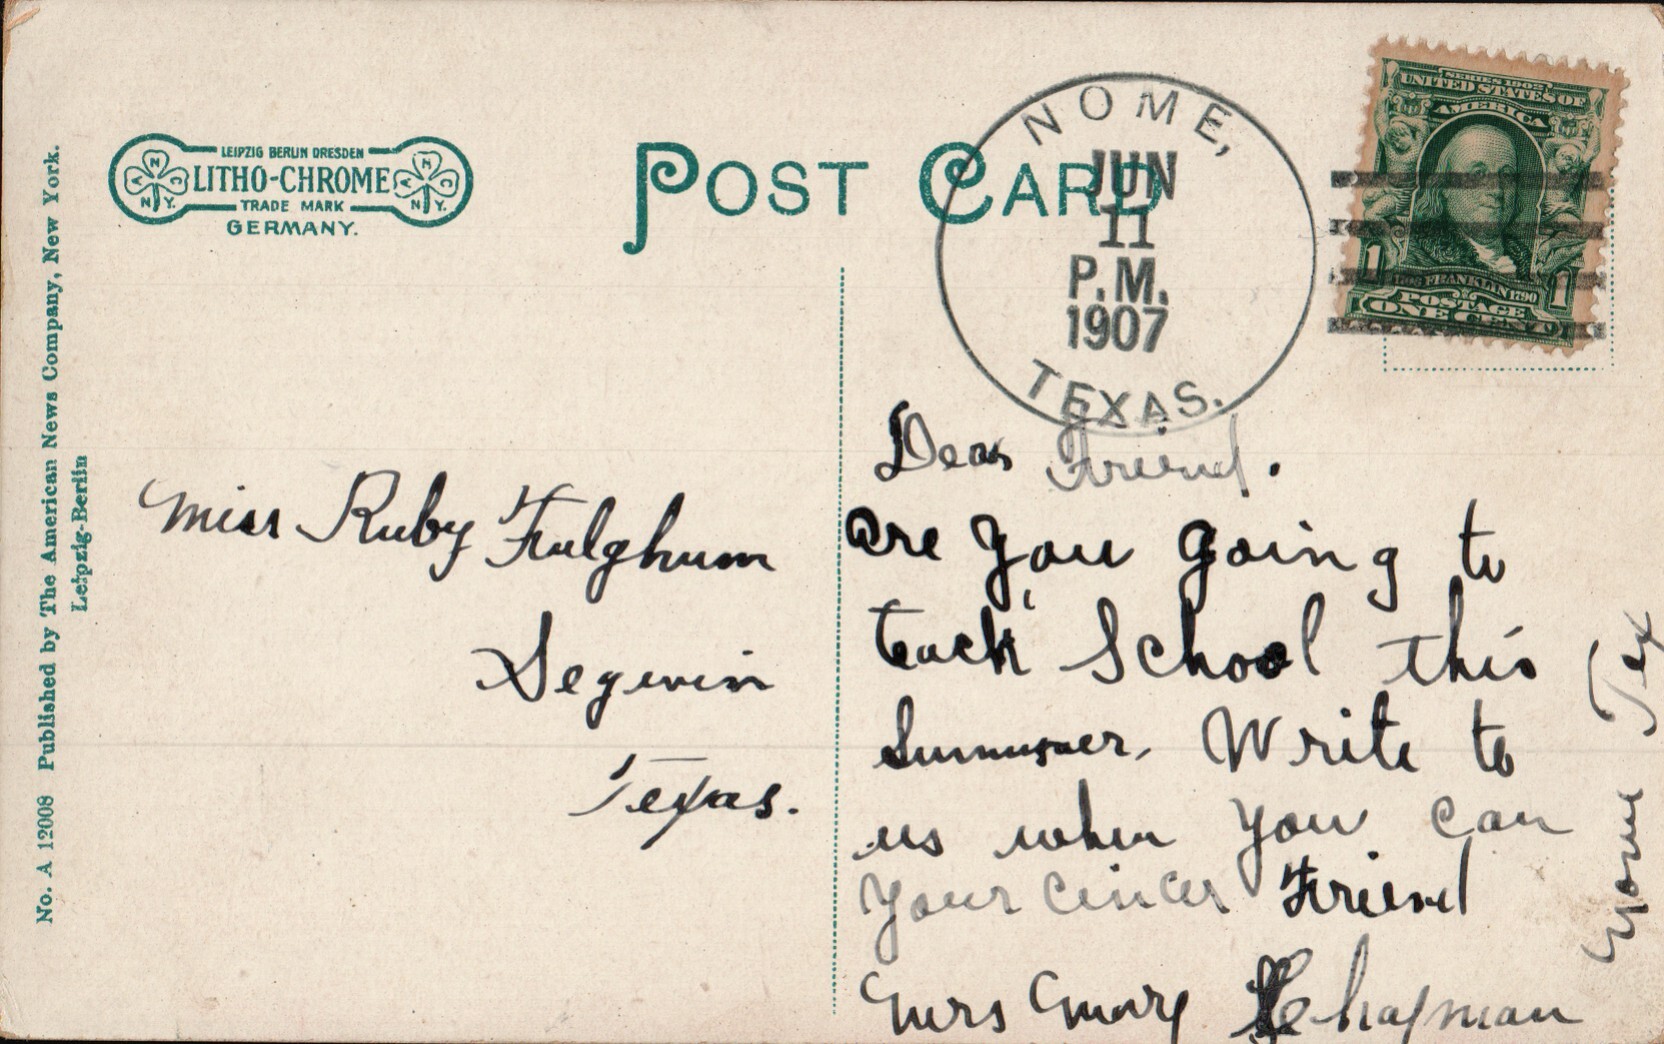 No. A 12008 Published by The American News Company, New York.
Leipzig-Berlin
LEIPZIG BERLIN DRESDEN
LITHO-CHROME
TRADE MARK
GERMANY.
A N C N.Y.
A N C N.Y.
POST CARD
NOME,
JUN
11
P.M.
1907
TEXAS.
SERIES 1902
UNITED STATES OF
AMERICA
FRANKLIN 1790
1 POSTAGE 1
ONE CENT
Miss Ruby Fulghum
Seguin
Texas.
Dear Friend.
are you going to
teach School this
Summer. Write to
us when you can
your cincer Friend
Mrs Mary Chapman
Nome Tex